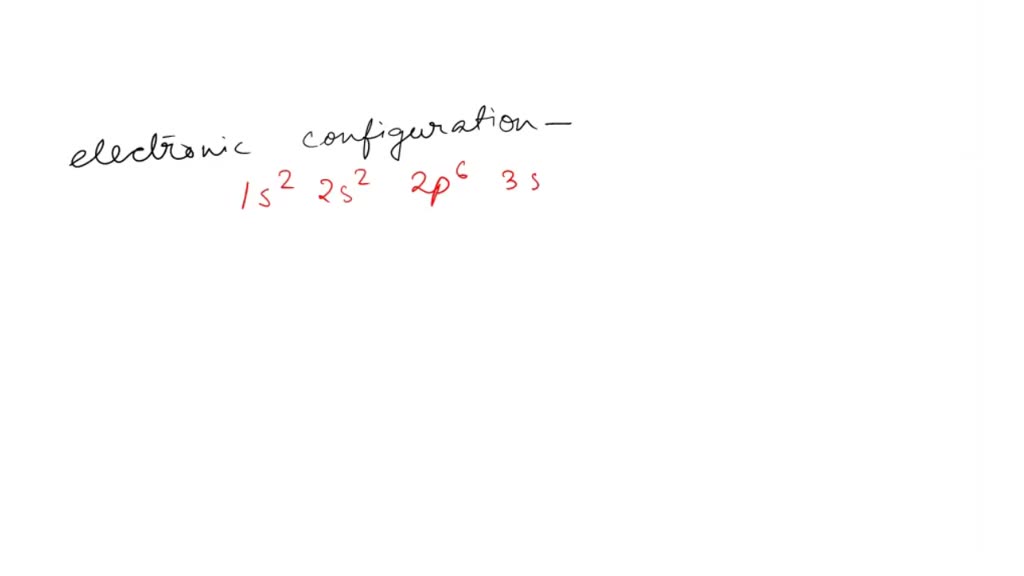 electronic configuration —
1s² 2s² 2p⁶ 3s